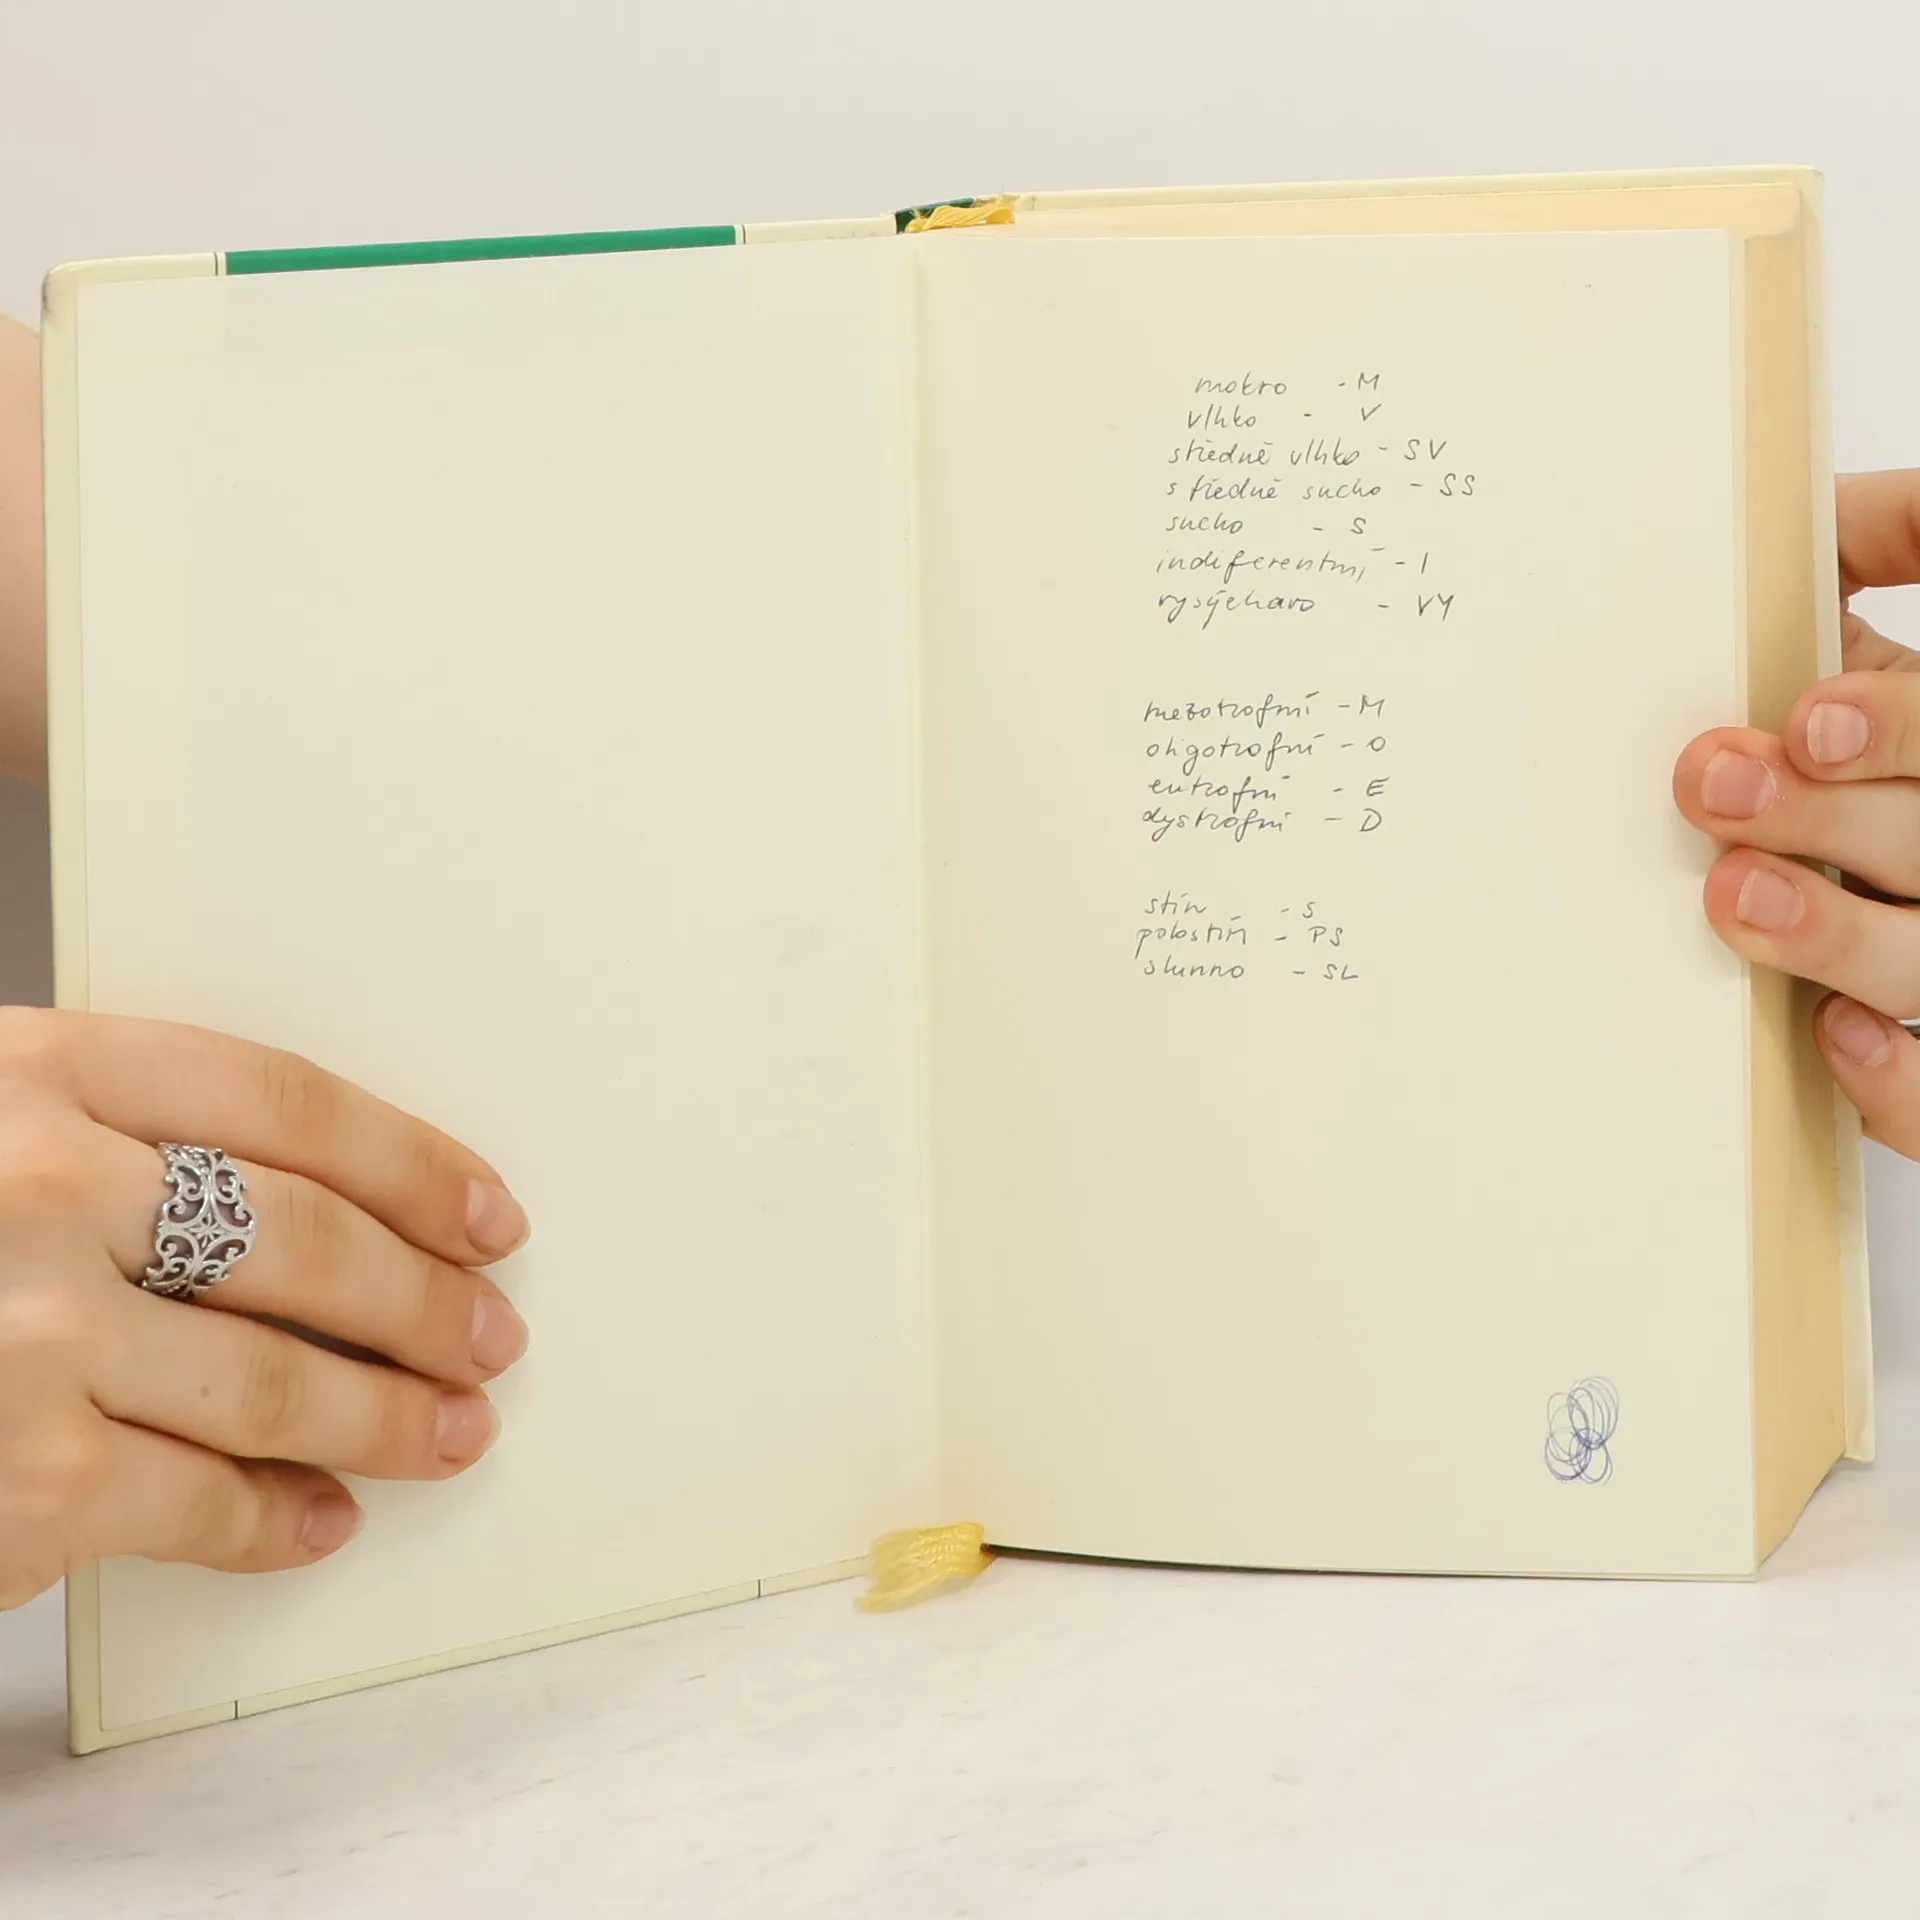 mokro - M
vlhko - V
středně vlhko - SV
středně sucho - SS
sucho - S
indiferentní - I
vysýchavo - VY
mezotrofní - M
oligotrofní - O
eutrofní - E
dystrofní - D
stín - S
polostín - PS
slunno - SL